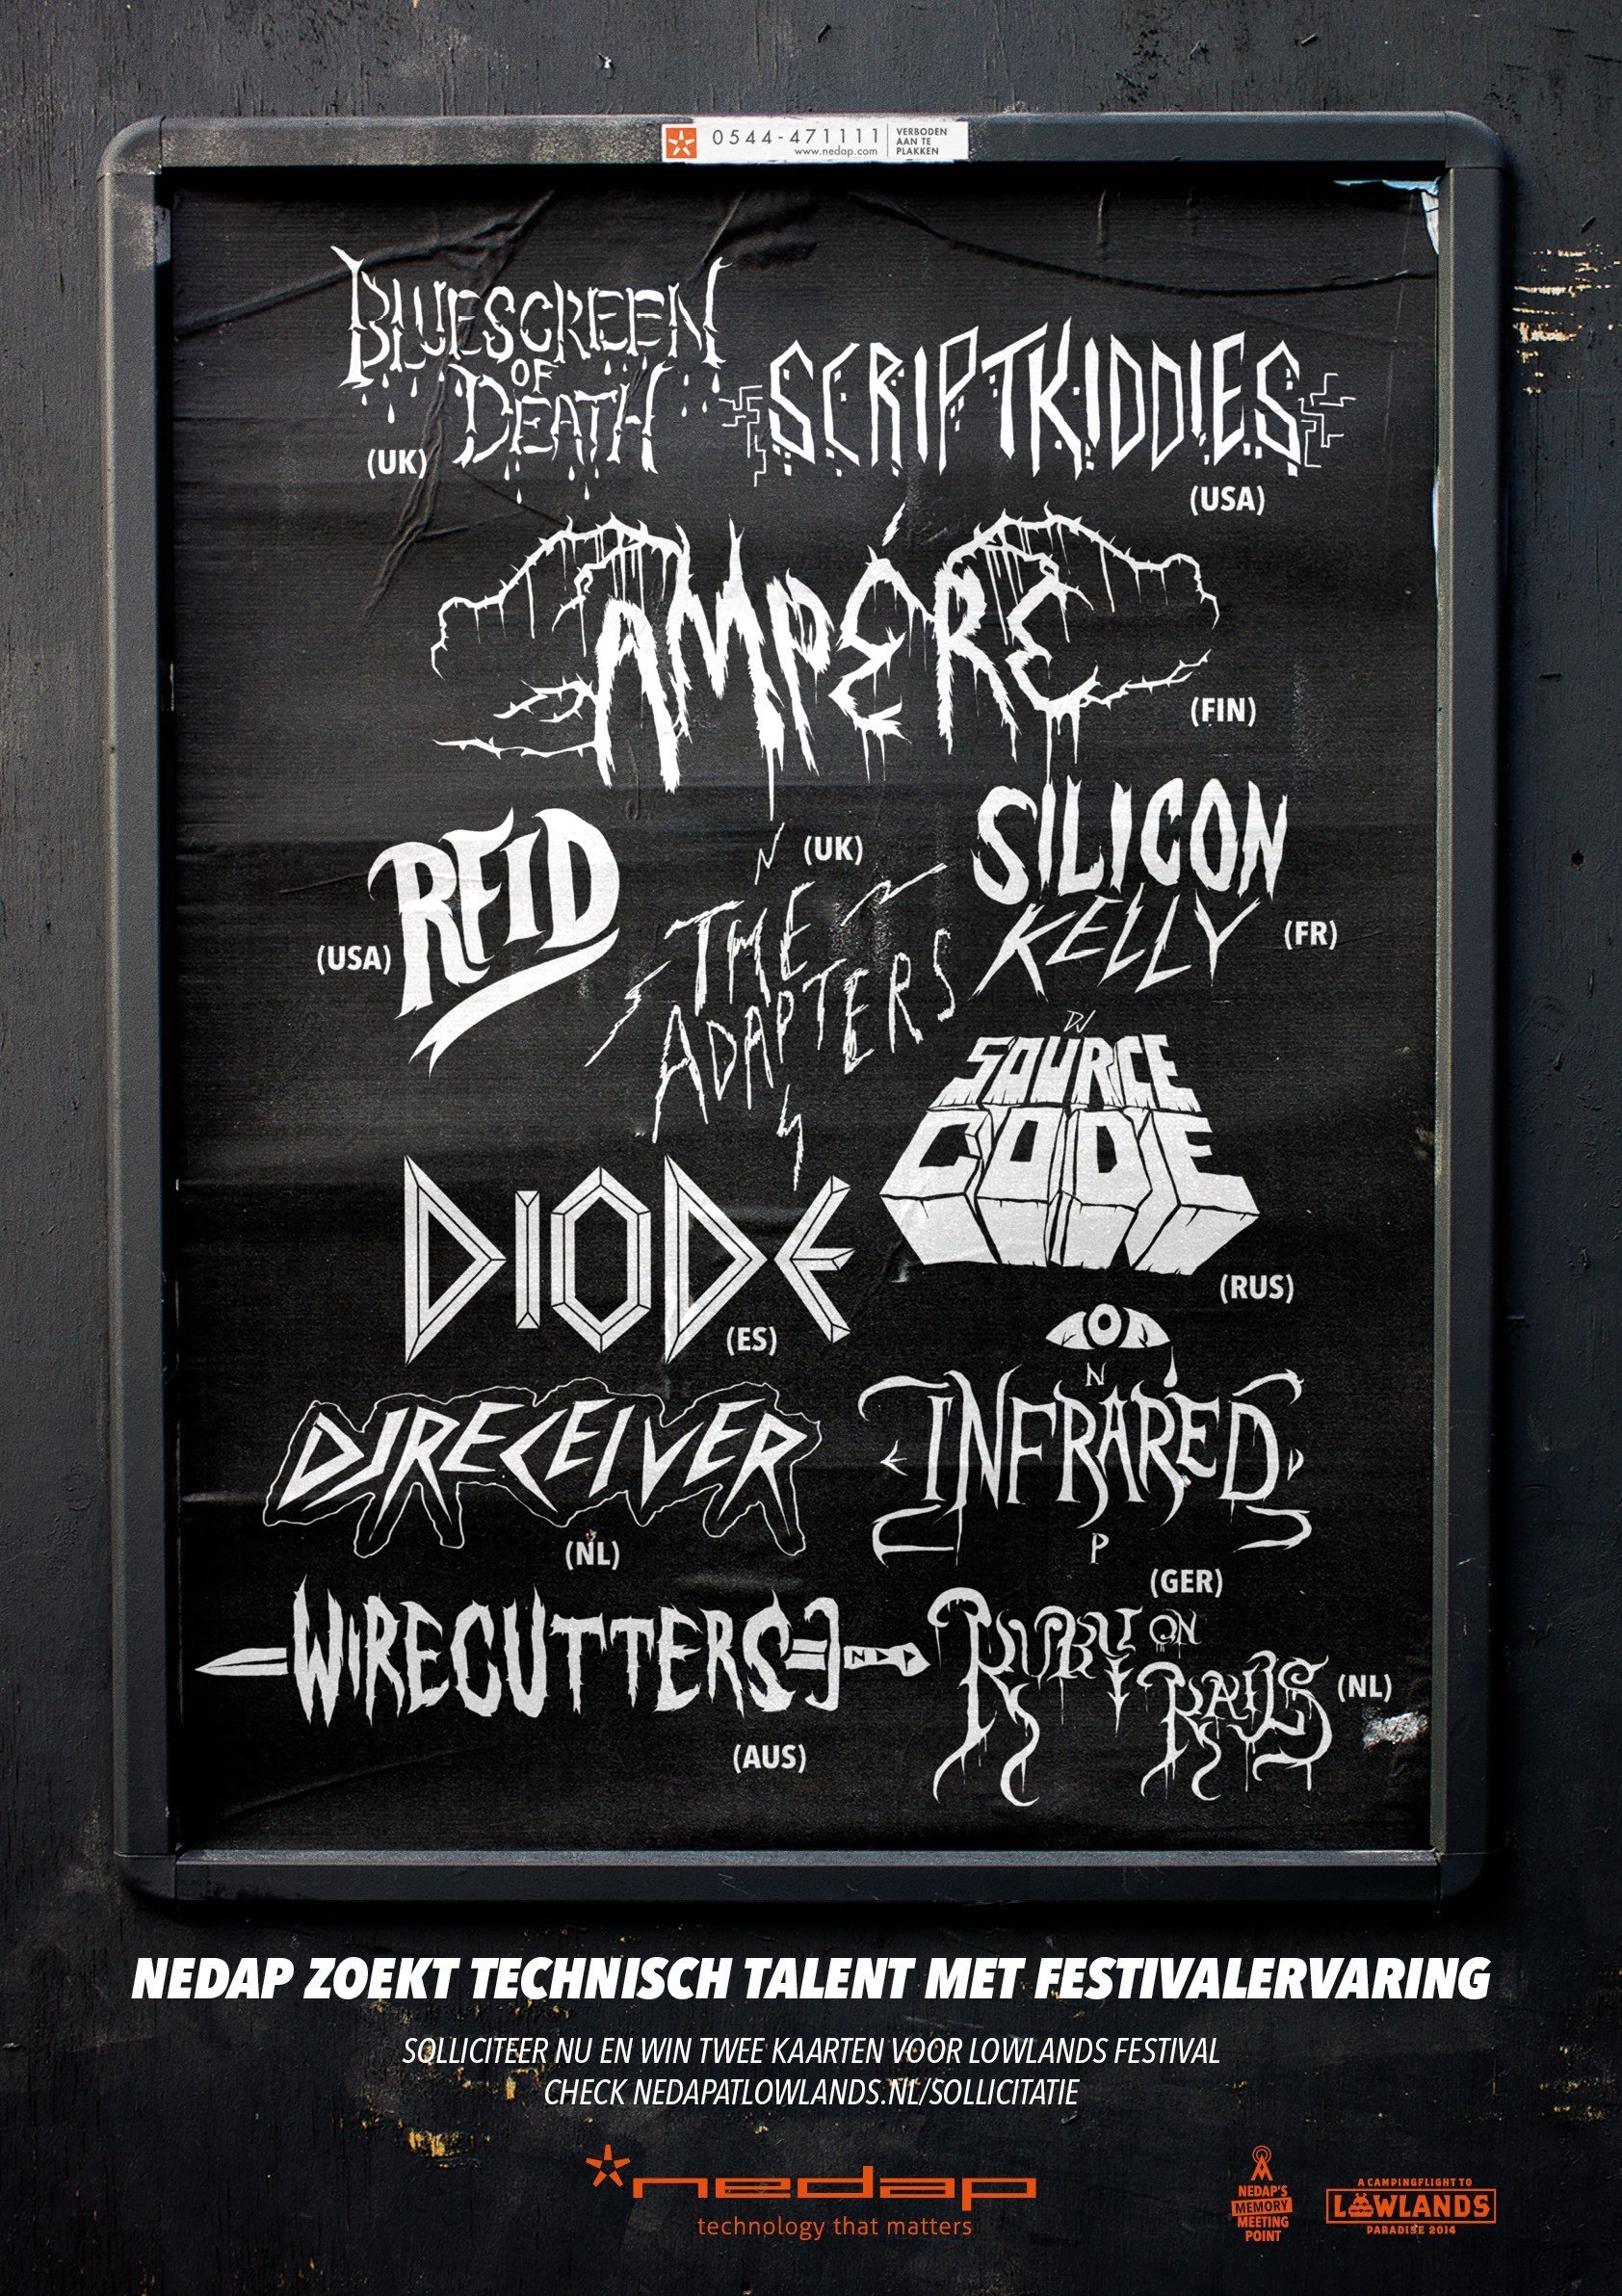 0544-471111
www.nedap.com
VERBODEN
AAN TE
PLAKKEN
BLUESCREEN
OF
DEATH
(UK)
SCRIPTKIDDIES
(USA)
AMPÉRE
(FIN)
RFID
(USA)
(UK)
THE
ADAPTERS
SILICON
KELLY
(FR)
DJ
SOURCE
CODE
(RUS)
DIODE
(ES)
DJ RECEIVER
(NL)
N
E INFRARED D
P
(GER)
WIRECUTTERS
N
(AUS)
RUBY ON
RAILS
(NL)
NEDAP ZOEKT TECHNISCH TALENT MET FESTIVALERVARING
SOLLICITEER NU EN WIN TWEE KAARTEN VOOR LOWLANDS FESTIVAL
CHECK NEDAPATLOWLANDS.NL/SOLLICITATIE
nedap
technology that matters
NEDAP'S
MEMORY
MEETING
POINT
A CAMPINGFLIGHT TO
LOWLANDS
PARADISE 2014